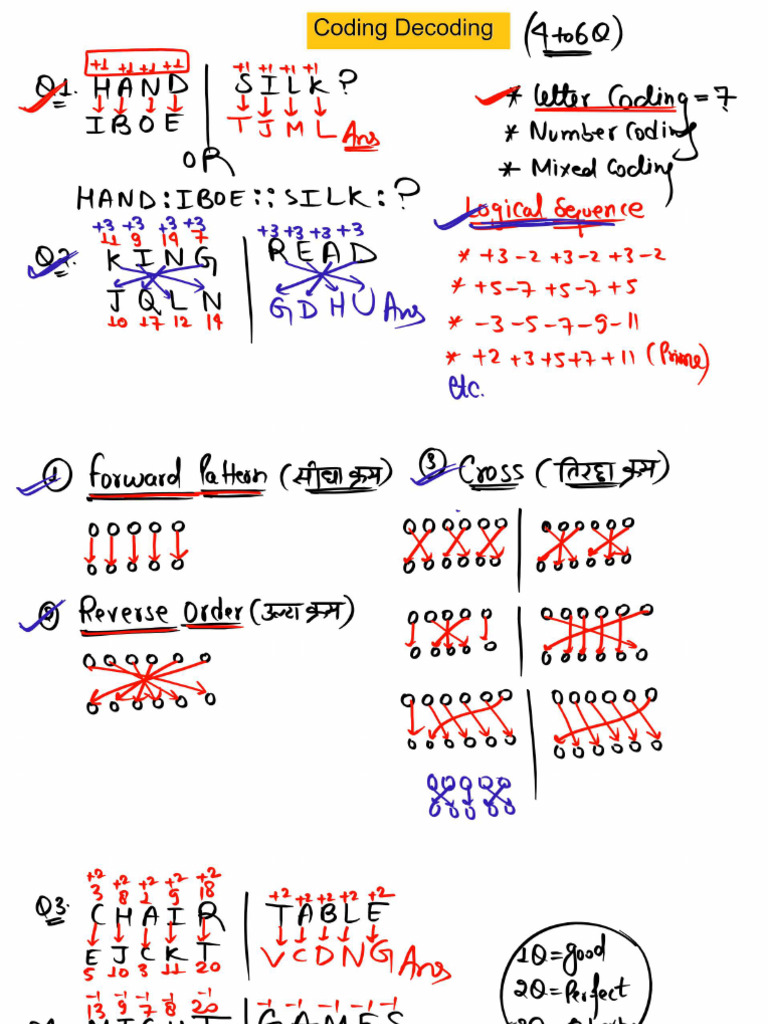 Coding Decoding (4 to 6Q)
+1 +1 +1 +1 +1 +1 +1 +1
Q1. HAND SILK?
IBOE TJML Ans
OR
HAND:IBOE::SILK:?
* Letter Coding = 7
* Number Coding
* Mixed Coding
Logical Sequence
* +3 -2 +3 -2 +3 -2
* +5 -7 +5 -7 +5
* -3 -5 -7 -9 -11
* +2 +3 +5 +7 +11 (Prime)
etc.
+3 +3 +3 +3 +3 +3 +3 +3
11 9 14 7
Q2. KING READ
JQLN GDHU Ans
10 17 12 14
① Forward Pattern (सीधा क्रम)
② Reverse Order (उल्टा क्रम)
③ Cross (तिरछा क्रम)
+2 +2 +2 +2 +2
3 8 1 9 18 +2 +2 +2 +2 +2
Q3. CHAIR TABLE
EJCKT VCDNG Ans
5 10 3 11 20
-1 -1 -1 -1 -1
13 9 7 8 20 -1 -1 -1 -1 -1
GAMES
1Q = good
2Q = Perfect